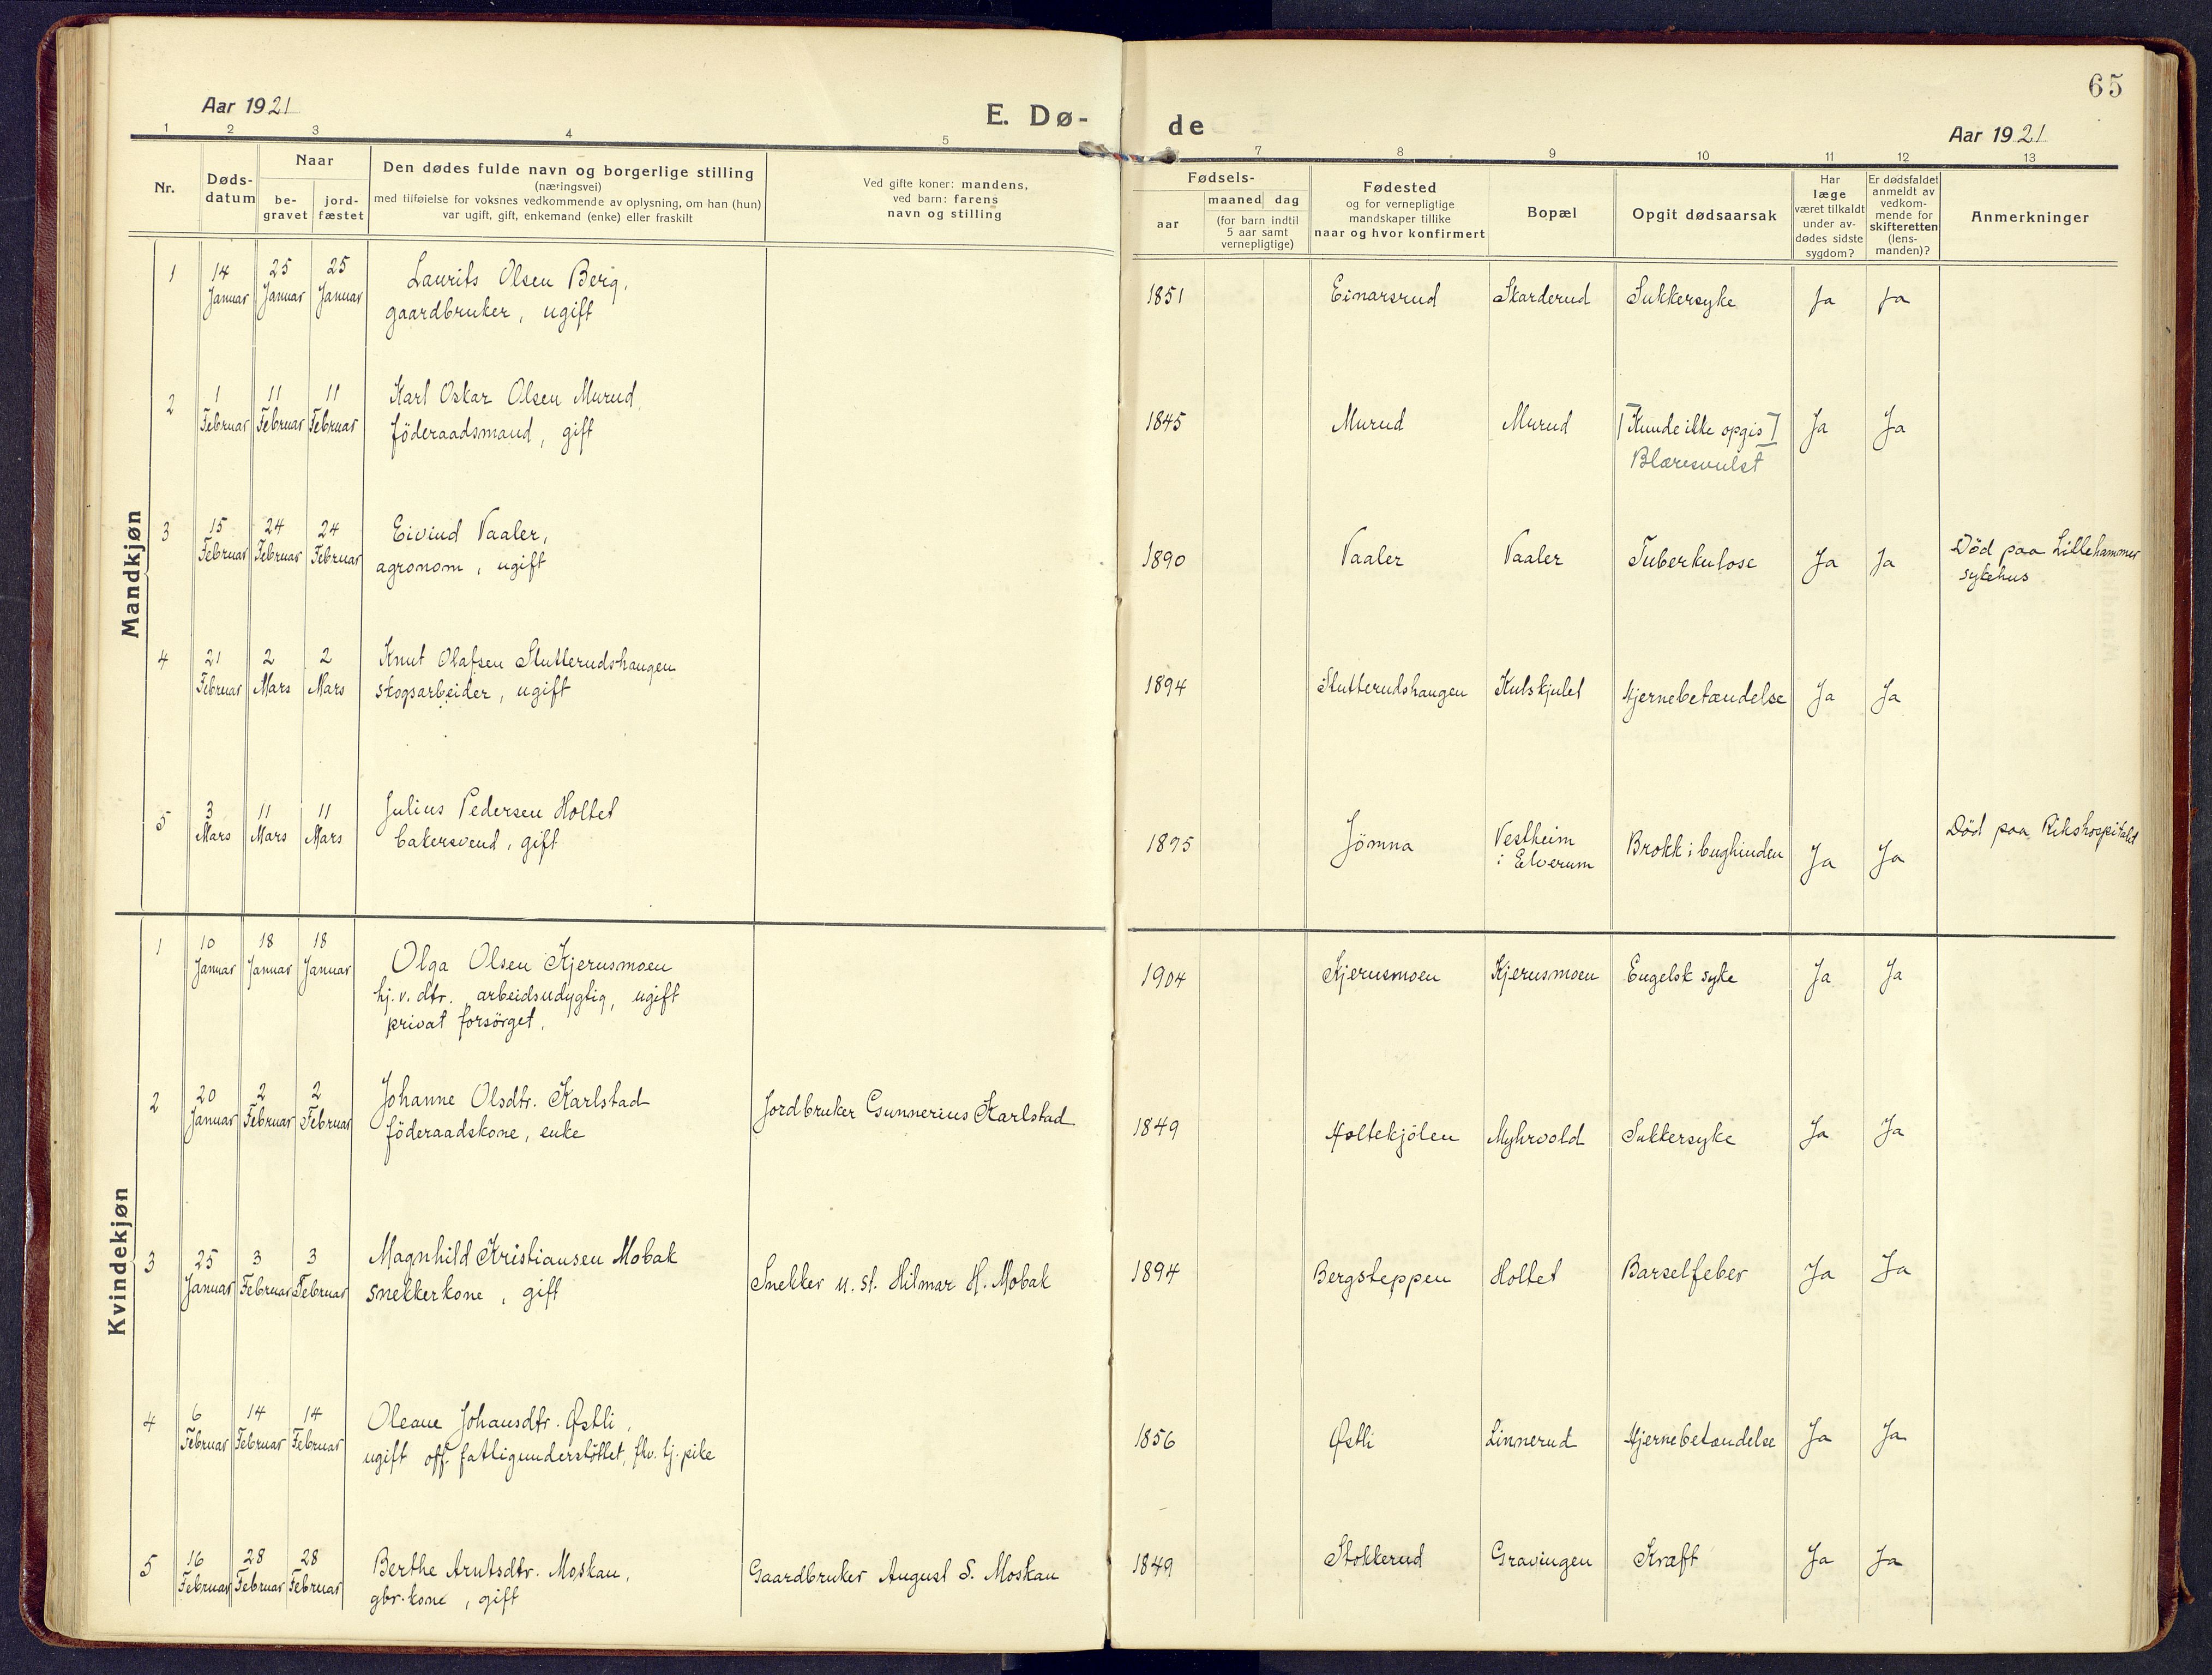 65
Aar 1921
E. Dø-
de
Aar 1921
1 2 3 4 5
6 7 8 9 10 11 12 13
Nr.
Døds-
datum
Naar
be-
gravet
jord-
fæstet
Den dødes fulde navn og borgerlige stilling
(næringsvei)
med tilføielse for voksnes vedkommende av oplysning, om han (hun)
var ugift, gift, enkemand (enke) eller fraskilt
Ved gifte koner: mandens,
ved barn: farens
navn og stilling
Fødsels-
aar
maaned dag
(for barn indtil
5 aar samt
vernepligtige)
Fødested
og for vernepligtige
mandskaper tillike
naar og hvor konfirmert
Bopæl
Opgit dødsaarsak
Har
læge
været tilkaldt
under av-
dødes sidste
sygdom?
Er dødsfaldet
anmeldt av
vedkom-
mende for
skifteretten
(lens-
manden)?
Anmerkninger
Mandkjøn
1 14 25 25 Laurits Olsen Berg,
Januar Januar Januar gaardbruker, ugift
1851 Einarsrud Skarderud Sukkersyke Ja Ja
2 1 11 11 Karl Oskar Olsen Murud,
Februar Februar Februar föderaadsmand, gift
1845 Murud Murud [Kunde ikke opgis] Ja Ja
Blæresvulst
3 15 24 24 Eivind Vaaler,
Februar Februar Februar agronom, ugift
1890 Vaaler Vaaler Tuberkulose Ja Ja Död paa Lillehammer
sykehus
4 21 2 2 Knut Olafsen Slutterudshaugen
Februar Mars Mars skogsarbeider, ugift
1894 Slutterudshaugen Kulskjulet Hjernebetændelse Ja Ja
5 3 11 11 Julius Pedersen Holtet
Mars Mars Mars bakersvend, gift
1895 Jömna Vestheim Brokk i bughinden Ja Ja Död paa Rikshospitalet
i Elverum
Kvindekjøn
1 10 18 18 Olga Olsen Kjerusmoen
Januar Januar Januar hj.v. dtr. arbeidsudygtig, ugift
privat forsörget,
1904 Kjerusmoen Kjerusmoen Engelsk syke Ja Ja
2 20 2 2 Johanne Olsdtr. Karlstad Jordbruker Gunnerius Karlstad
Januar Februar Februar föderaadskone, enke
1849 Holtekjölen Myhrvold Sukkersyke Ja Ja
3 25 3 3 Magnhild Kristiansen Mobak Snekker u. st. Hilmar H. Mobak
Januar Februar Februar snekkerkone, gift
1894 Bergsteppen Holtet Barselfeber Ja Ja
4 6 14 14 Oleane Johansdtr. Østli,
Februar Februar Februar ugift off. fattigunderstöttet, fhv. tj. pike
1856 Østli Linnerud Hjernebetændelse Ja Ja
5 16 28 28 Berthe Arntsdtr. Moskau, Gaardbruker August S. Moskau
Februar Februar Februar gbr. kone, gift
1849 Stokkerud Gravingen Kræft Ja Ja